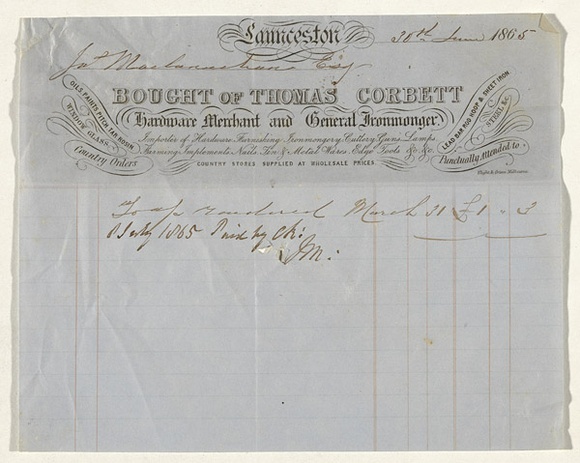 Launceston 30th June 1865
Jas Esq
BOUGHT OF THOMAS CORBETT
Hardware Merchant and General Ironmonger,
OILS, PAINTS, PITCH, TAR, ROSIN
WINDOW GLASS,
Country Orders
Importer of Hardware, Furnishing Ironmongery, Cutlery, Guns, Lamps,
Farming Implements, Nails, Tin & Metal Wares, Edge Tools &c. &c.
COUNTRY STORES SUPPLIED AT WHOLESALE PRICES.
LEAD, BAR, ROD, HOOP & SHEET IRON
STEEL, &c.
Punctually attended to
To a/c rendered March 31 £1 " 3
1865 Paid by Ck:
JM: